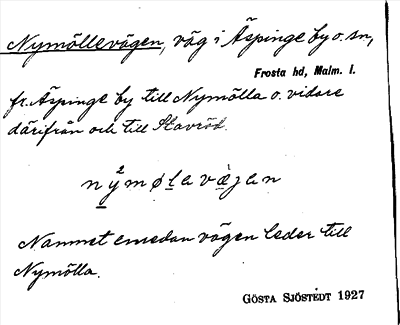 Nymöllevägen, väg i Äspinge by o. sn,
Frosta hd, Malm. l.
fr. Äspinge by till Nymölla o. vidare
därifrån och till Stavröd.
ny²mølavæjan
Namnet emedan vägen leder till
Nymölla.
GÖSTA SJÖSTEDT 1927